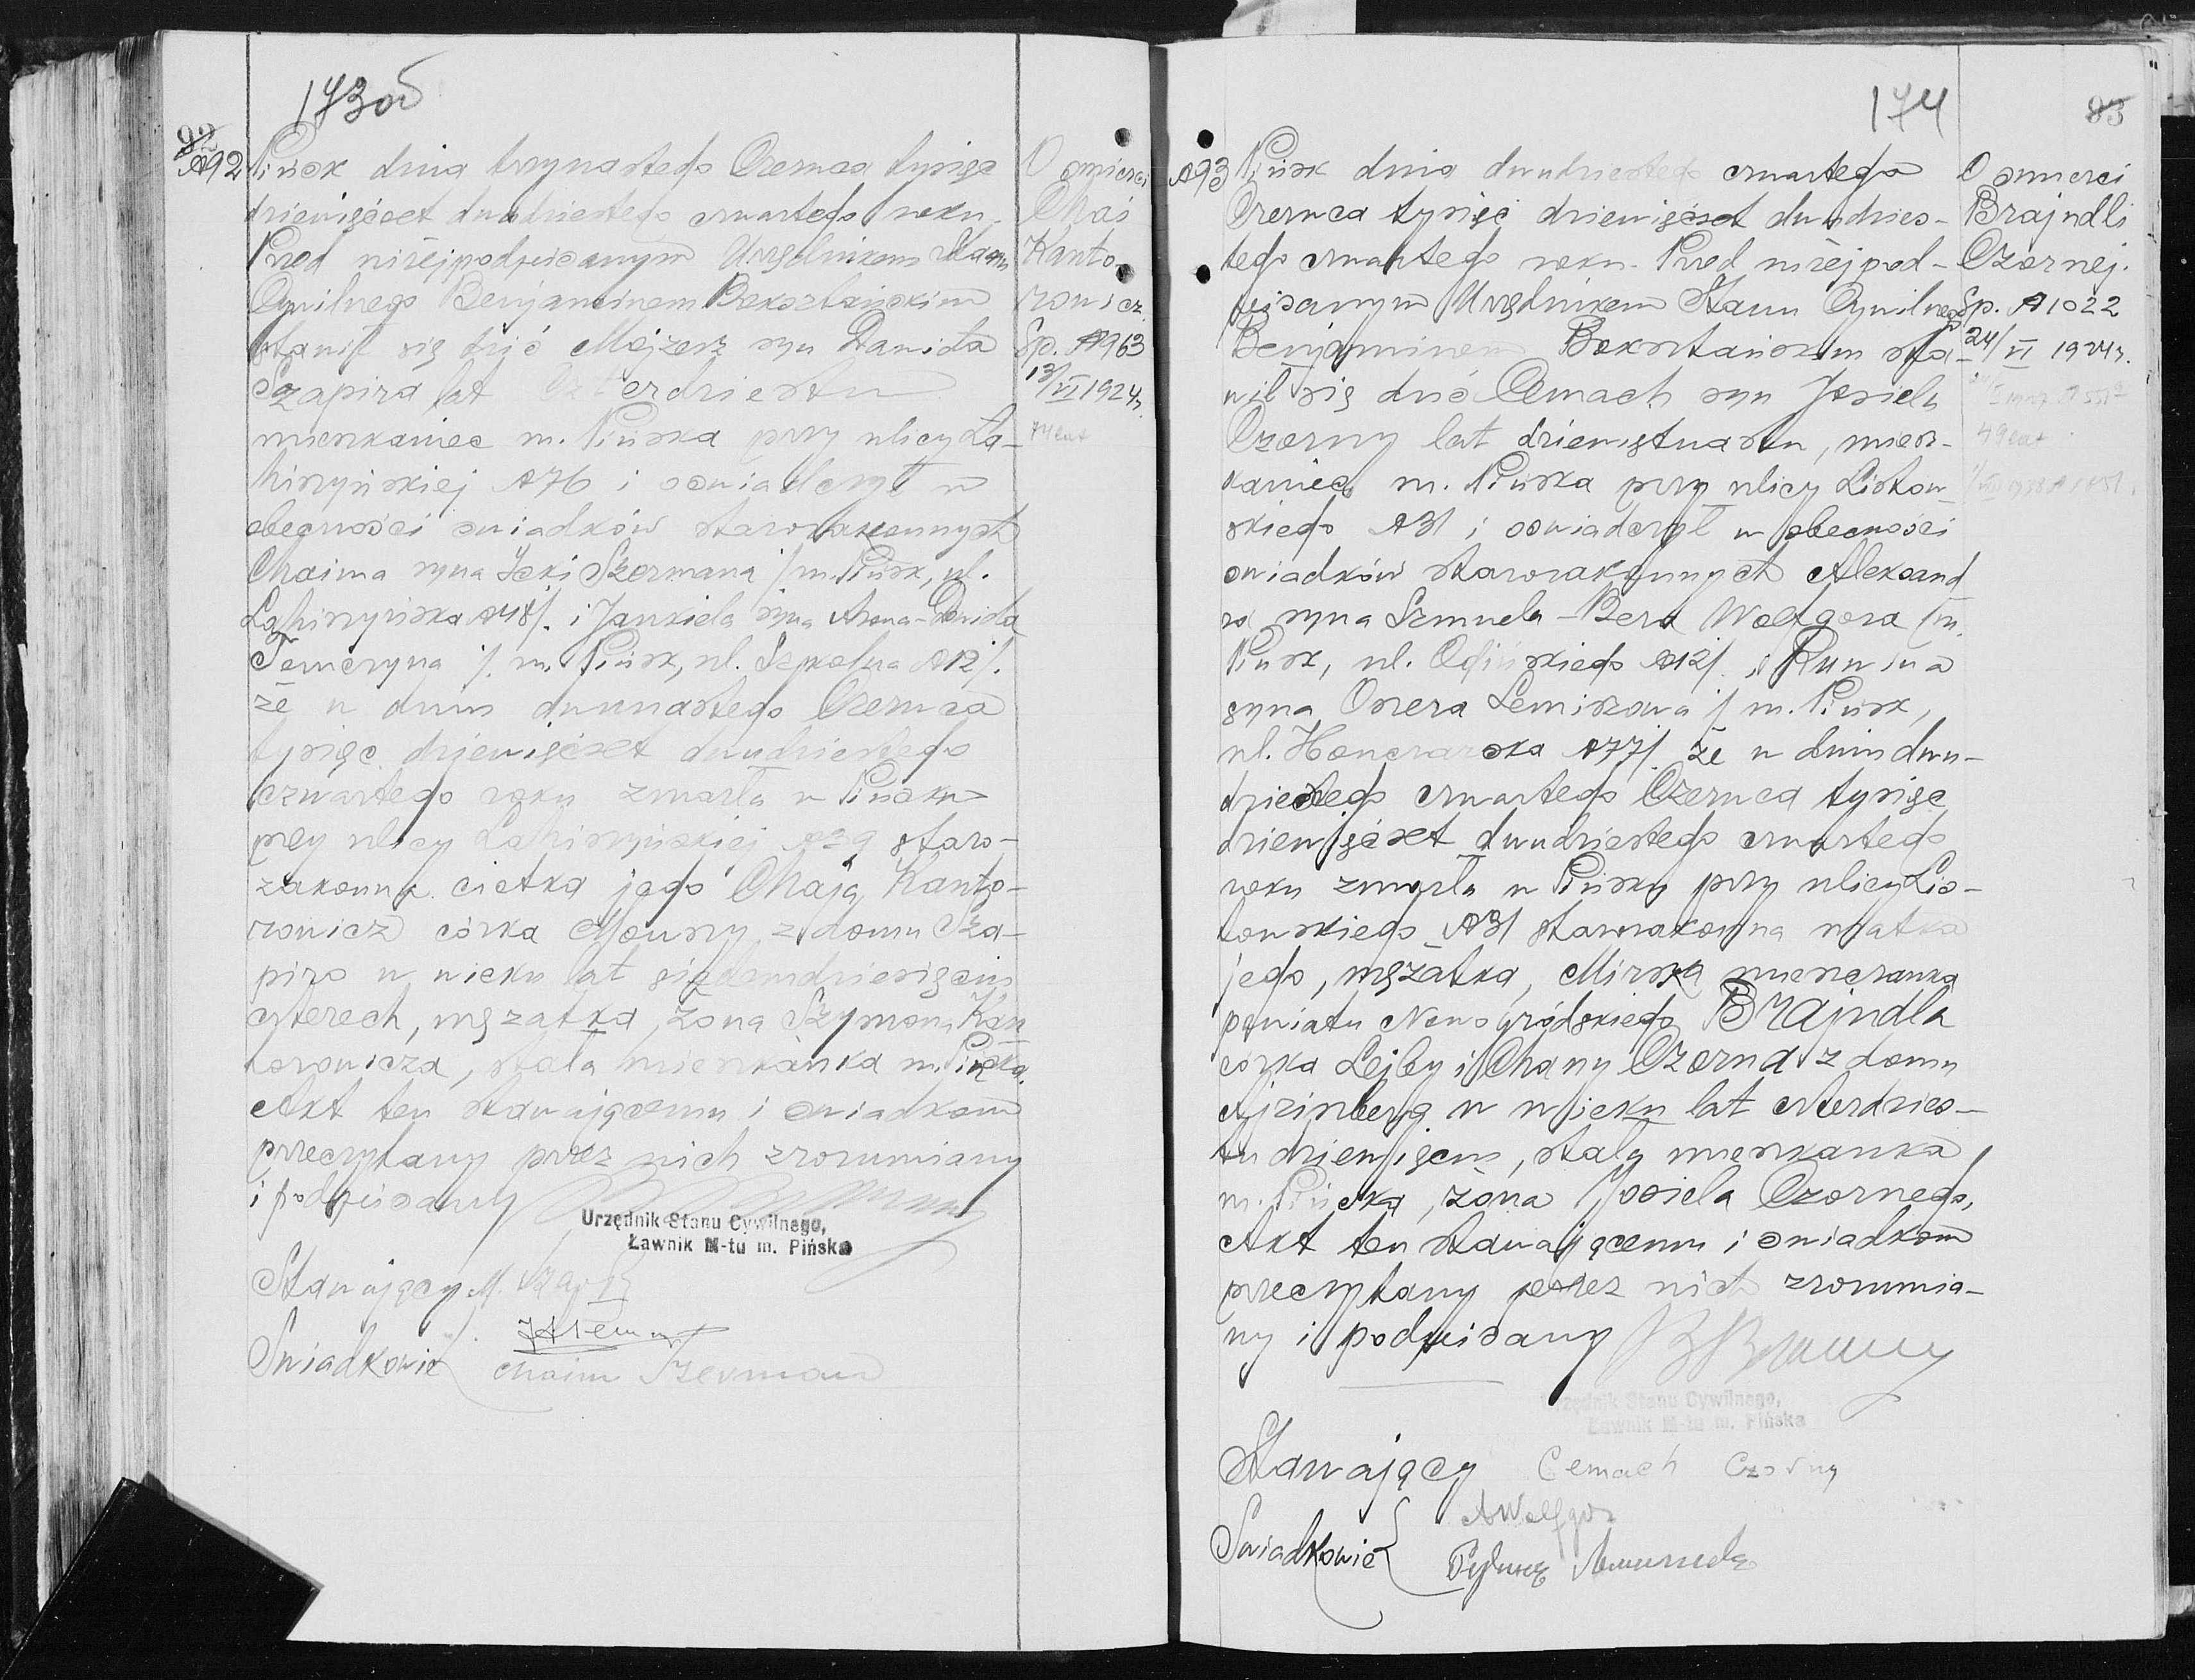 173об
92
№92
Pińsk dnia trzynastego Czerwca tysiąc
dziewięćset dwudziestego czwartego roku.
Przed niżejpodpisanym Urzędnikem Stanu
Cywilnego Benjaminem Boksztańskim
stawił się dziś Mojżesz syn Dawida
Szapira lat Czterdziestu
mieszkaniec m. Pińska przy ulicy Ła-
hiszyńskiej №76 i oświadczył w
obecności świadków starozakonnych
Chaima syna Icki Szermana /m. Pińsk, ul.
Łahiszyńska №48/. i Jankiela syna Arona-Dawida
Temczyna /. m. Pińsk, ul. Szkolna №12/.
że w dniu dwunastego Czerwca
tysiąc dziewięćset dwudziestego
czwartego roku zmarła w Pińsku
przy ulicy Łahiszyńskiej staro-
zakonna ciotka jego Chaja Kanto-
rowicz córka Mowszy z domu Sza-
piro w wieku lat siedemdziesięciu
czterech, mężatka, żona Szymona Kan
torowicza, stała mieszkanka m. Pińska.
Akt ten stawającemu i świadkom
przeczytany przez nich zrozumiany
i podpisany
Urzędnik Stanu Cywilnego,
Ławnik M-tu m. Pińska
Stawający M. Szap
Świadkowie
Chaim Szerman
O śmierci
Chai
Kanto
rowicz
Sp. №963
13/VI 1924r.
74 lat
174
83
№93
Pińsk dnia dwudziestego czwartego
Czerwca tysiąc dziewięćset dwudzies-
tego czwartego roku. Przed niżejpod-
pisanym Urzędnikem Stanu Cywilnego
Benjaminem Boksztańskim sta-
wił się dziś Cemach syn Josiela
Czorny lat dziewiętnastu, miesz-
kaniec m. Pińska przy ulicy Listow-
skiego №31 i oświadczył w obecności
świadków starozakonnych Aleksand
ra syna Szmuela-Bera Wolfgora /m.
Pińsk, ul. Ogińskiego №12/. i Ruwina
syna Ozera Lemiszowa /m. Pińsk,
ul. Honczarska №77/. że w dniu dwu-
dziestego czwartego Czerwca tysiąc
dziewięćset dwudziestego czwartego
roku zmarła w Pińsku przy ulicy Lis-
towskiego №31 starozakonna matka
jego, mężatka, Mirska mieszczanka
powiatu Nowogródskiego Brajndla
córka Lejby i Chany Czorna z domu
Ajzinberg w wieku lat czterdzies-
tu dziewięciu, stała mieszkanka
m. Pińska, żona Josiela Czornego,
Akt ten stawającemu i świadkom
przeczytany przez nich zrozumia-
ny i podpisany
Urzędnik Stanu Cywilnego,
Ławnik M-tu m. Pińska
Stawający Cemach Czorny
Świadkowie
AWolfgor
O śmierci
Brajndli
Czornej.
Sp. №1022
24/VI 1924r.
49 lat